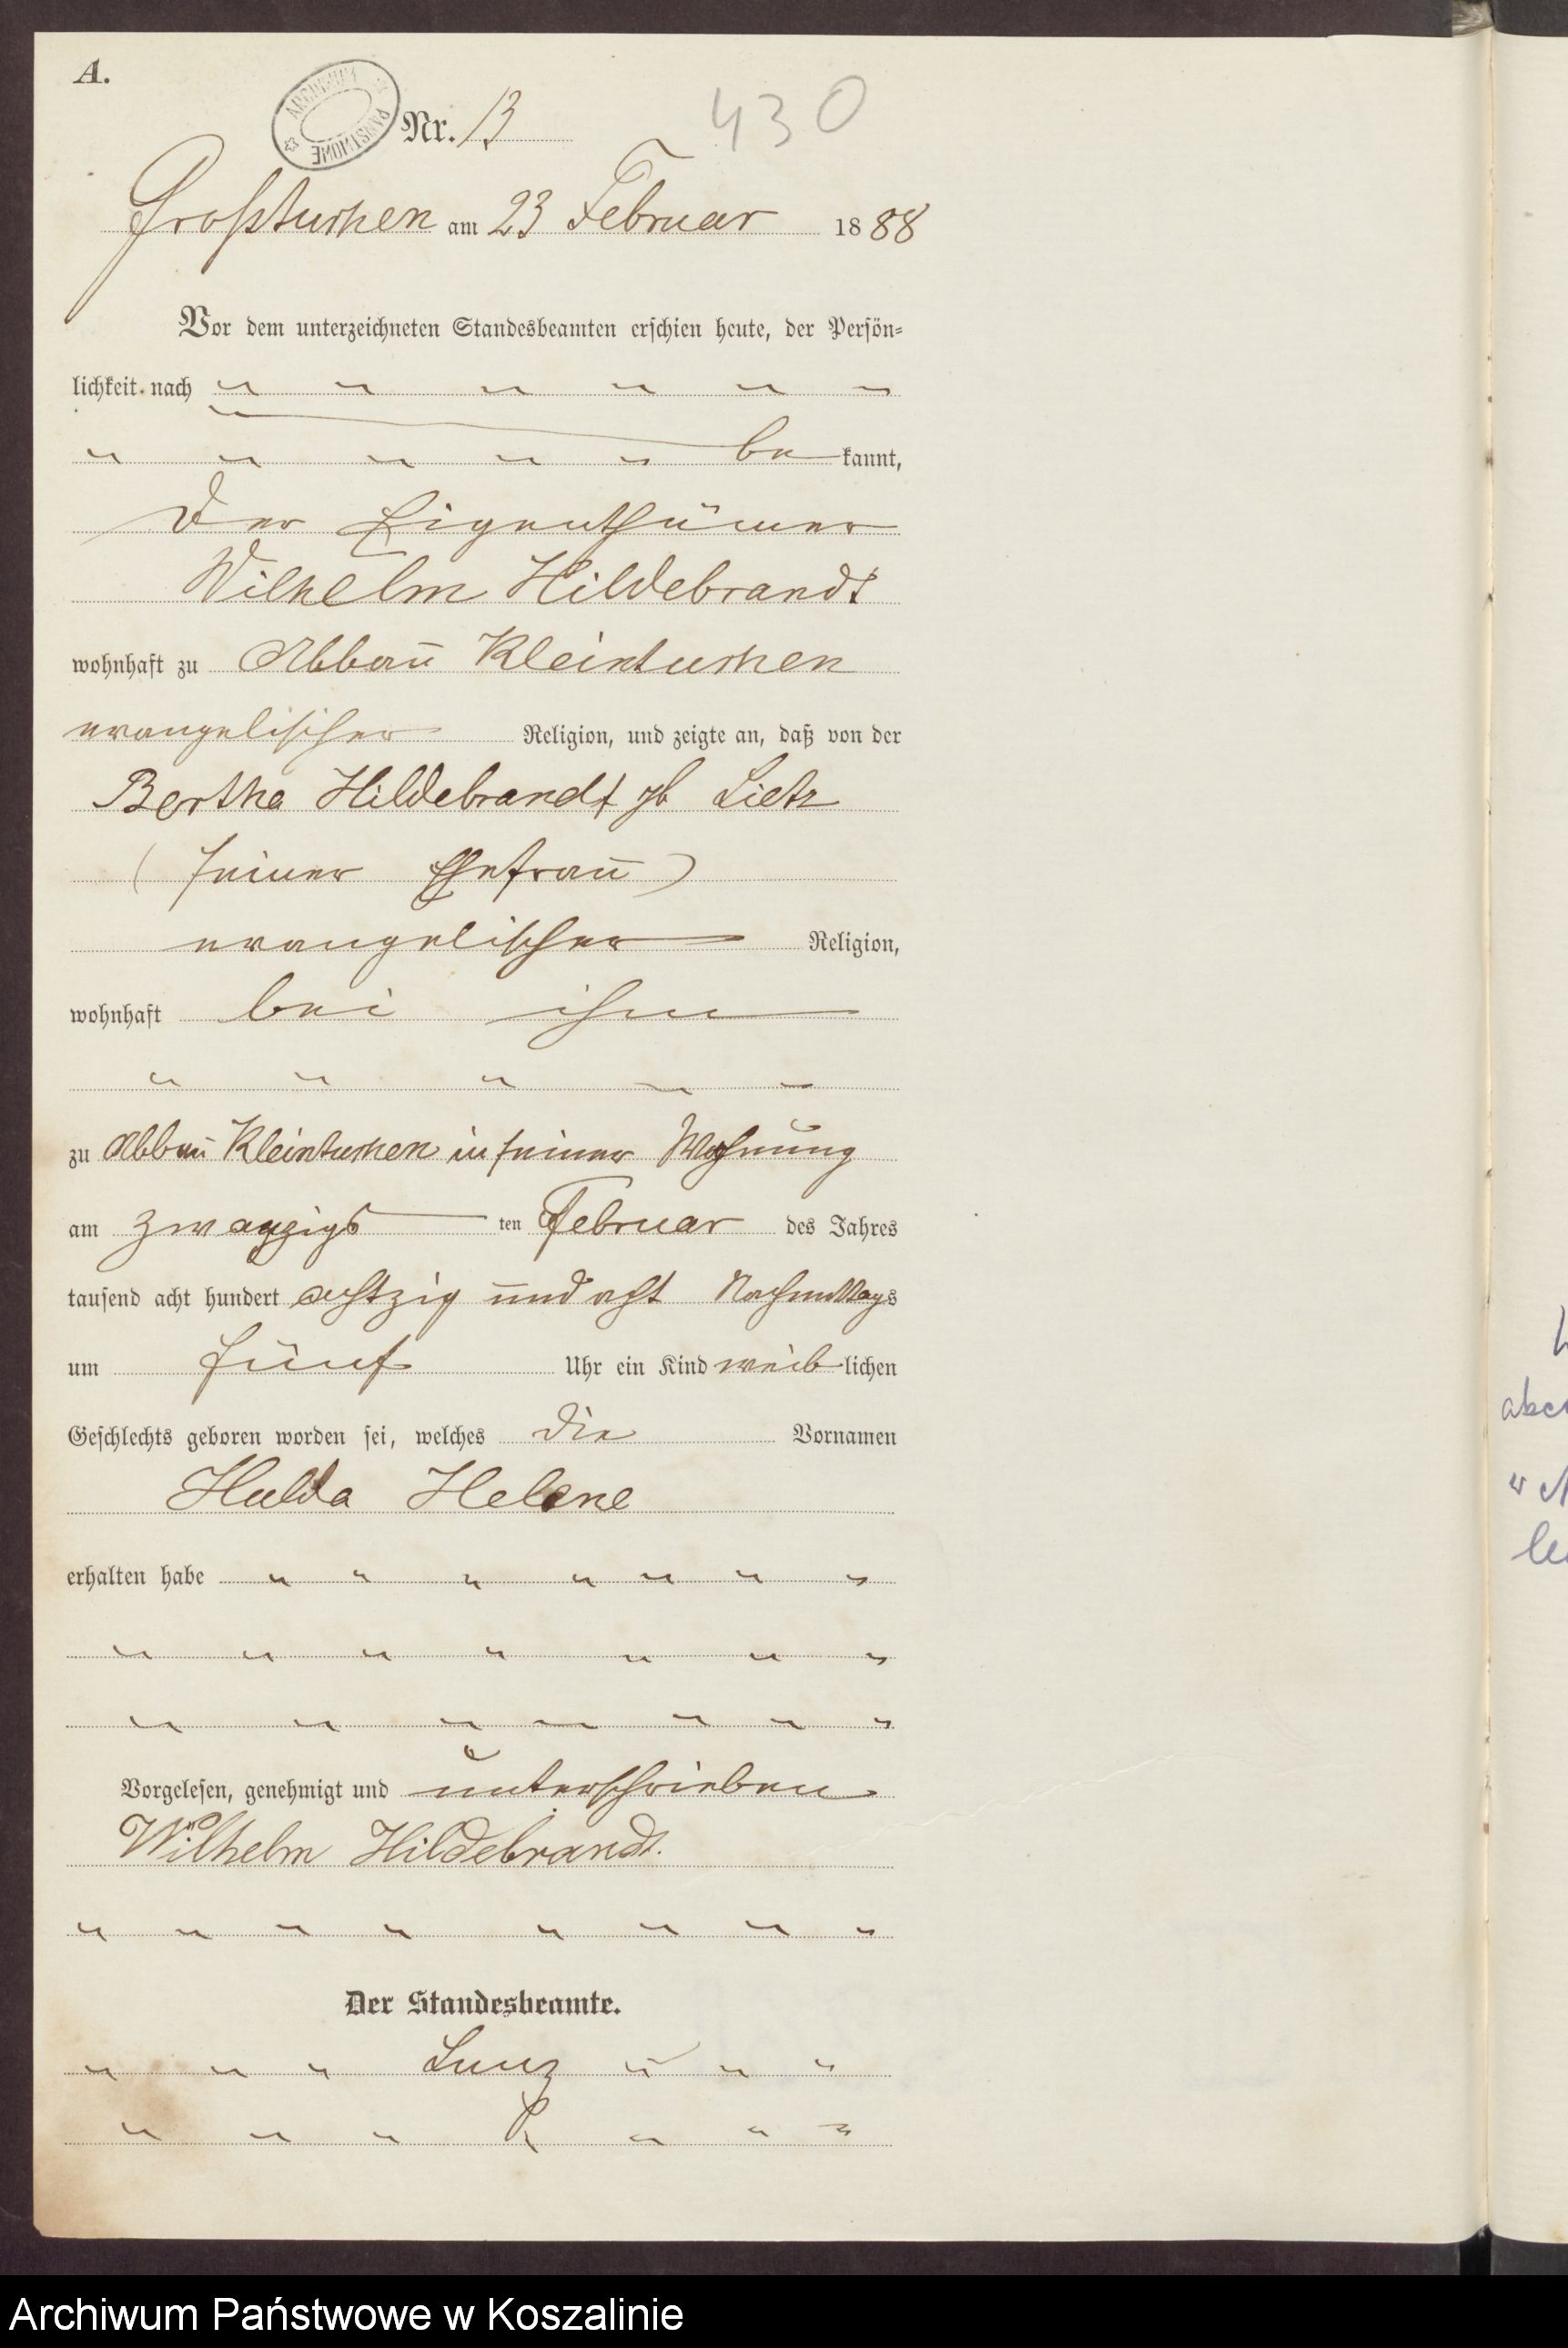 A.
ARCHIWUM PAŃSTWOWE
Nr. 13
430
Großtuchen am 23 Februar 1888
Vor dem unterzeichneten Standesbeamten erschien heute, der Persön-
lichkeit nach
be kannt,
Der Eigenthümer
Wilhelm Hildebrandt
wohnhaft zu Abbau Kleintuchen
evangelischer Religion, und zeigte an, daß von der
Bertha Hildebrandt gb Lietz
(seiner Ehefrau)
evangelischer Religion,
wohnhaft bei ihm
zu Abbau Kleintuchen in seiner Wohnung
am zwanzigs ten Februar des Jahres
tausend acht hundert achtzig und acht Nachmittags
um fünf Uhr ein Kind weib lichen
Geschlechts geboren worden sei, welches die Vornamen
Hulda Helene
erhalten habe
Vorgelesen, genehmigt und unterschrieben
Wilhelm Hildebrandt.
Der Standesbeamte.
Archiwum Państwowe w Koszalinie